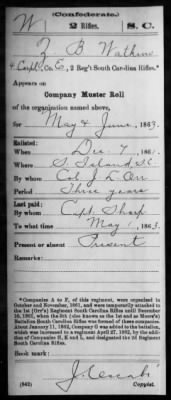 (Confederate.)
W 2 Rifles. S. C.
Z B Watkins
4 Corpl, Co. E, 2 Reg't South Carolina Rifles.*
Appears on
Company Muster Roll
of the organization named above,
for May & June, 1863.
Enlisted:
When Dec 7, 1861.
Where S. Island S.C.
By whom Col J L Orr
Period Three years
Last paid:
By whom Capt. Sharp
To what time May 1, 1863.
Present or absent Present
Remarks:
*Companies A to F, of this regiment, were organized in
October and November, 1861, and were temporarily attached to
the 1st (Orr's) Regiment South Carolina Rifles until December
Battalion South Carolina Rifles was formed of these companies.
About January 11, 1862, Company G was added to the battalion,
which was increased to a regiment April 27, 1862, by the addition
of Companies H, K and L, and designated the 2d Regiment
South Carolina Rifles.
Book mark:
(642)
Copyist.